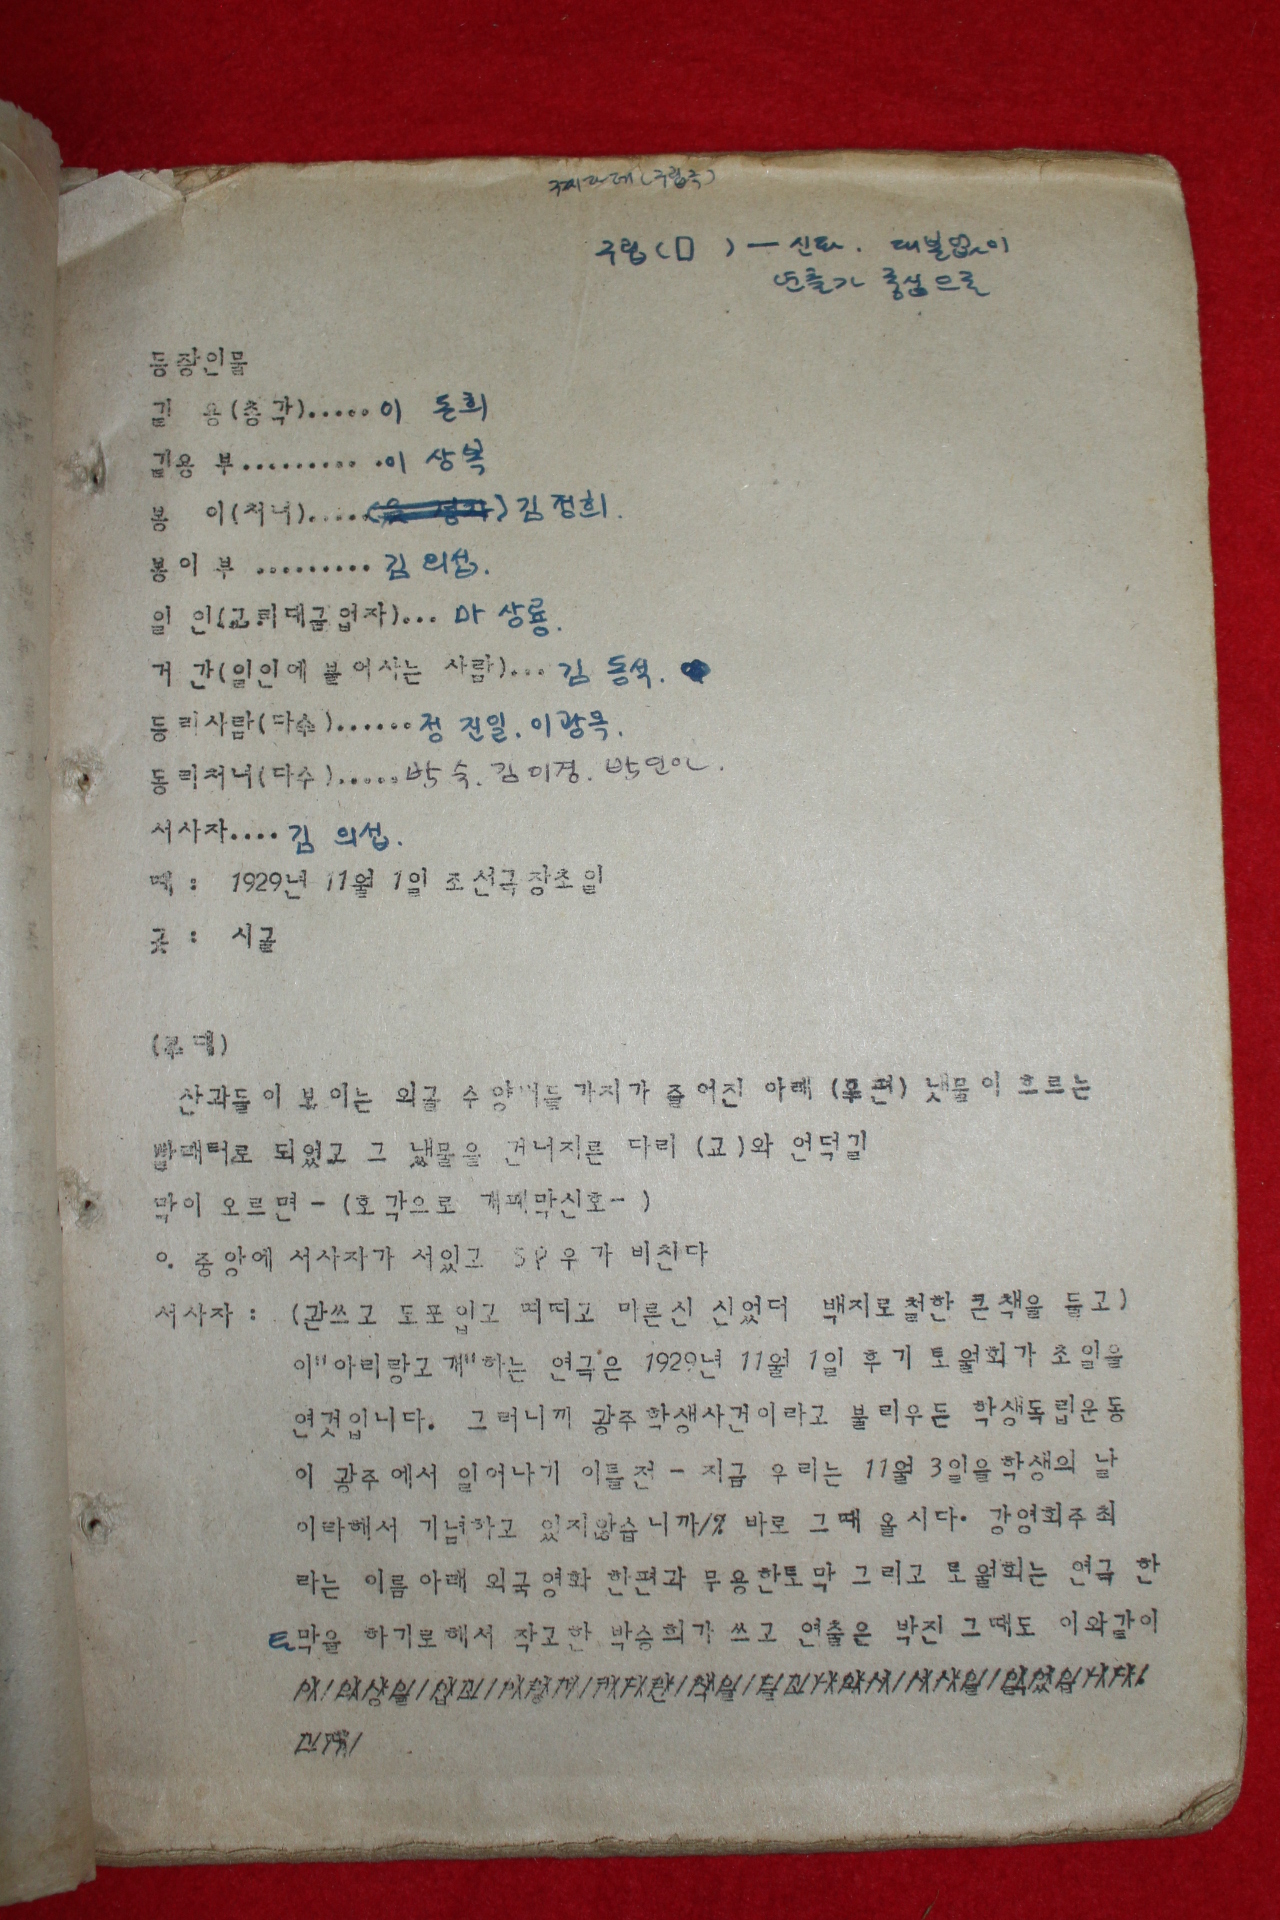 구립(口 ) — 신파. 대본없이
연출가 중심으로
등장인물
길 용(총각)..... 이 돈희
길용 부.......... 이 상복
봉 이(처녀)..... 김정희.
봉이 부 ......... 김 의섭.
일 인(고리대금업자)... 마 상룡.
거 간(일인에 붙어사는 사람)... 김 동석.
동리사람(다수)...... 정 진일. 이광목.
동리처녀(다수)..... 박 숙. 김이경. 박연아.
서사자.... 김 의섭.
때 : 1929년 11월 1일 조선극장초일
곳 : 시골
(무대)
산과들이 보이는 외골 수양버들가지가 줄어진 아래 (후편) 냇물이 흐르는
빨래터로 되었고 그 냇물을 건너지른 다리 (교)와 언덕길
막이 오르면 - (호각으로 개폐막신호-)
o. 중앙에 서사자가 서있고 SP우가 비친다
서사자 : (관쓰고 도포입고 띠띠고 마른신 신었더 백지로철한 큰책을 들고)
이"아리랑고개"하는 연극은 1929년 11월 1일 후기 토월회가 초일을
연것입니다. 그러니끼 광주학생사건이라고 불리우든 학생독립운동
이 광주에서 일어나기 이틀전 - 지금 우리는 11월 3일을학생의 날
이라해서 기념하고 있지않습니까 바로 그때 올시다. 강영희주최
라는 이름아래 외국영화 한편과 무용한토막 그리고 토월회는 연극 한
토막을 하기로해서 작고한 박승희가 쓰고 연출은 박진 그때도 이와같이